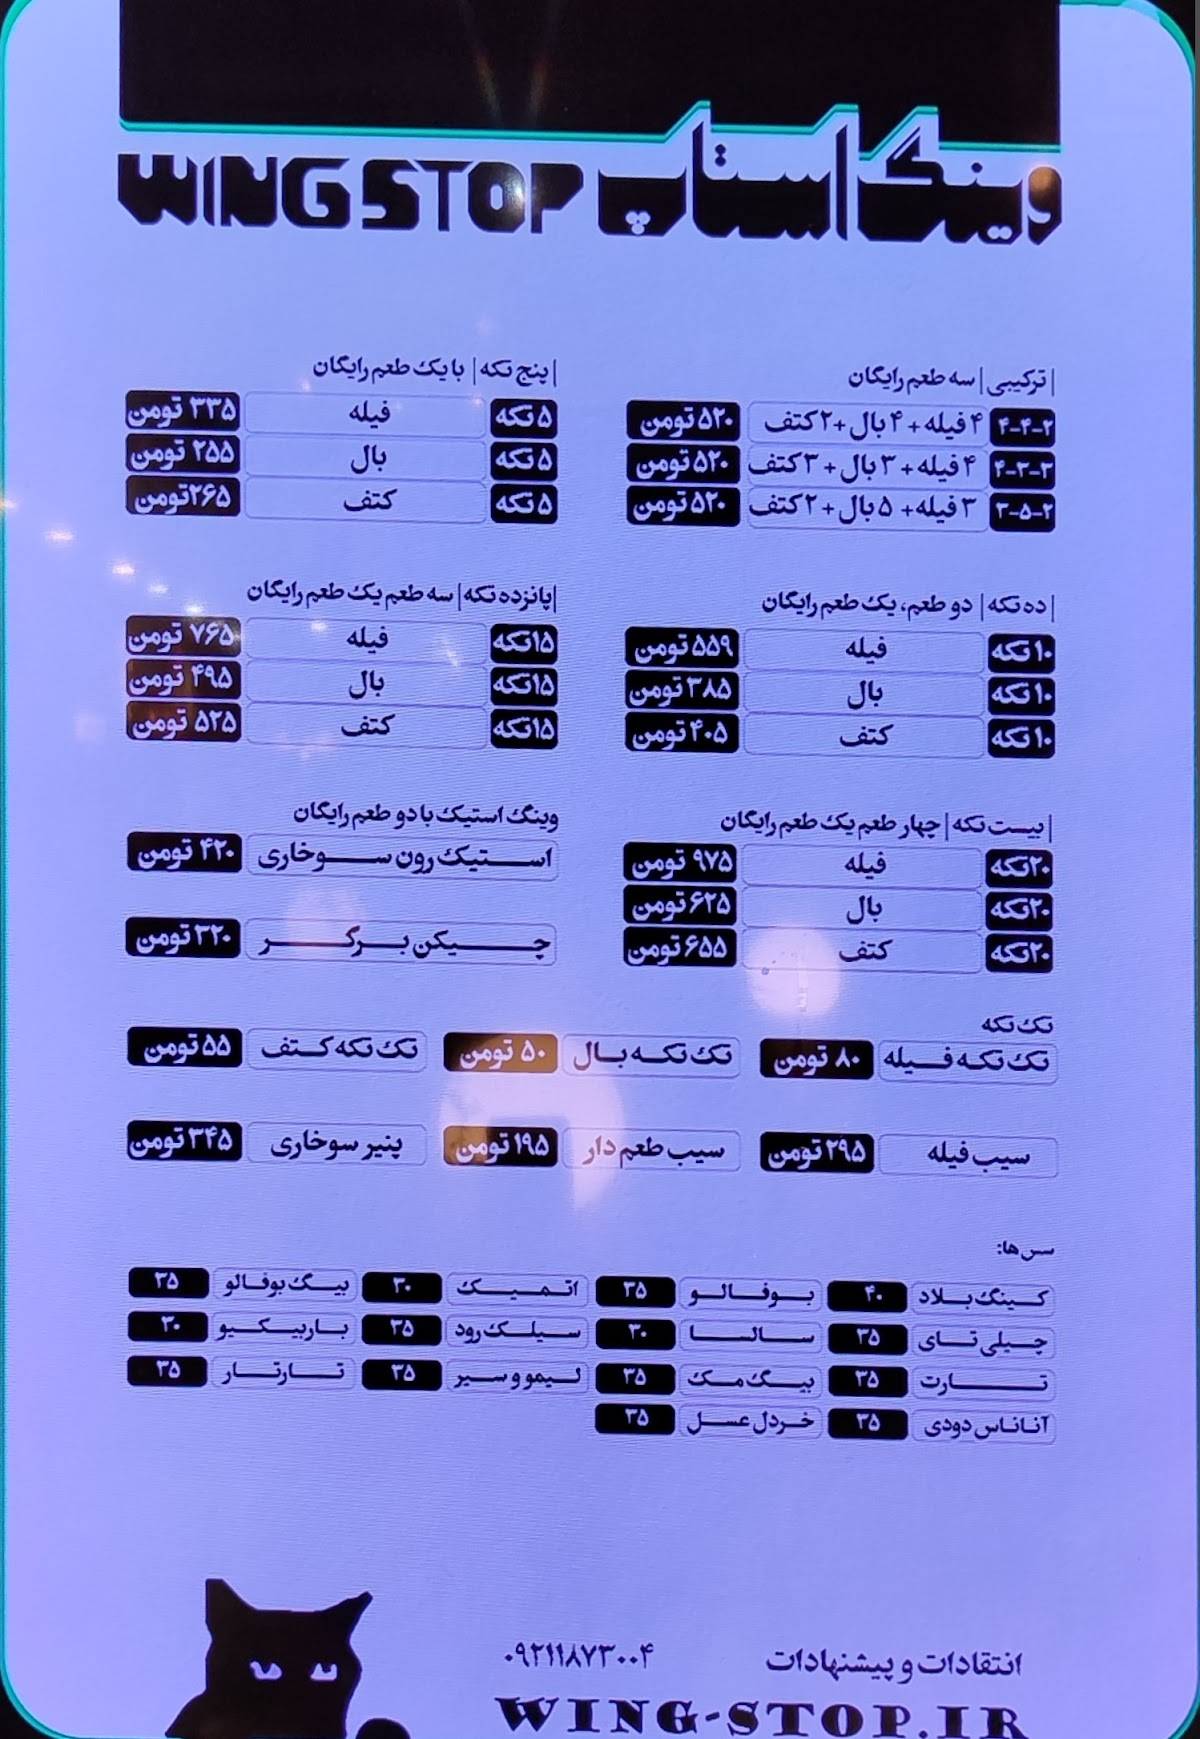 وینگ استاپ WING STOP
| ترکیبی | سه طعم رایگان
۴-۴-۲ ۴ فیله + ۴ بال + ۲ کتف ۵۲۰ تومن
۴-۳-۳ ۴ فیله + ۳ بال + ۳ کتف ۵۲۰ تومن
۳-۵-۲ ۳ فیله + ۵ بال + ۲ کتف ۵۲۰ تومن
| پنج تکه | با یک طعم رایگان
۵ تکه فیله ۳۳۵ تومن
۵ تکه بال ۲۵۵ تومن
۵ تکه کتف ۲۶۵ تومن
| ده تکه | دو طعم، یک طعم رایگان
۱۰ تکه فیله ۵۵۹ تومن
۱۰ تکه بال ۳۸۵ تومن
۱۰ تکه کتف ۴۰۵ تومن
| پانزده تکه | سه طعم یک طعم رایگان
۱۵ تکه فیله ۷۶۵ تومن
۱۵ تکه بال ۴۹۵ تومن
۱۵ تکه کتف ۵۲۵ تومن
| بیست تکه | چهار طعم یک طعم رایگان
۲۰ تکه فیله ۹۷۵ تومن
۲۰ تکه بال ۶۲۵ تومن
۲۰ تکه کتف ۶۵۵ تومن
وینگ استیک با دو طعم رایگان
استیک رون سوخاری ۴۲۰ تومن
چیکن برگر ۳۲۰ تومن
تک تکه
تک تکه فیله ۸۰ تومن تک تکه بال ۵۰ تومن تک تکه کتف ۵۵ تومن
سیب فیله ۲۹۵ تومن سیب طعم دار ۱۹۵ تومن پنیر سوخاری ۳۴۵ تومن
سس ها:
کینگ بلاد ۴۰ بوفالو ۳۵ اتمیک ۳۰ بیگ بوفالو ۳۵
چیلی تای ۳۵ سالسا ۳۰ سیلک رود ۳۵ باربیکیو ۳۰
تارت ۳۵ بیگ مک ۳۵ لیمو و سیر ۳۵ تارتار ۳۵
آناناس دودی ۳۵ خردل عسل ۳۵
انتقادات و پیشنهادات ۰۹۲۱۱۸۷۳۰۰۴
WING-STOP.IR